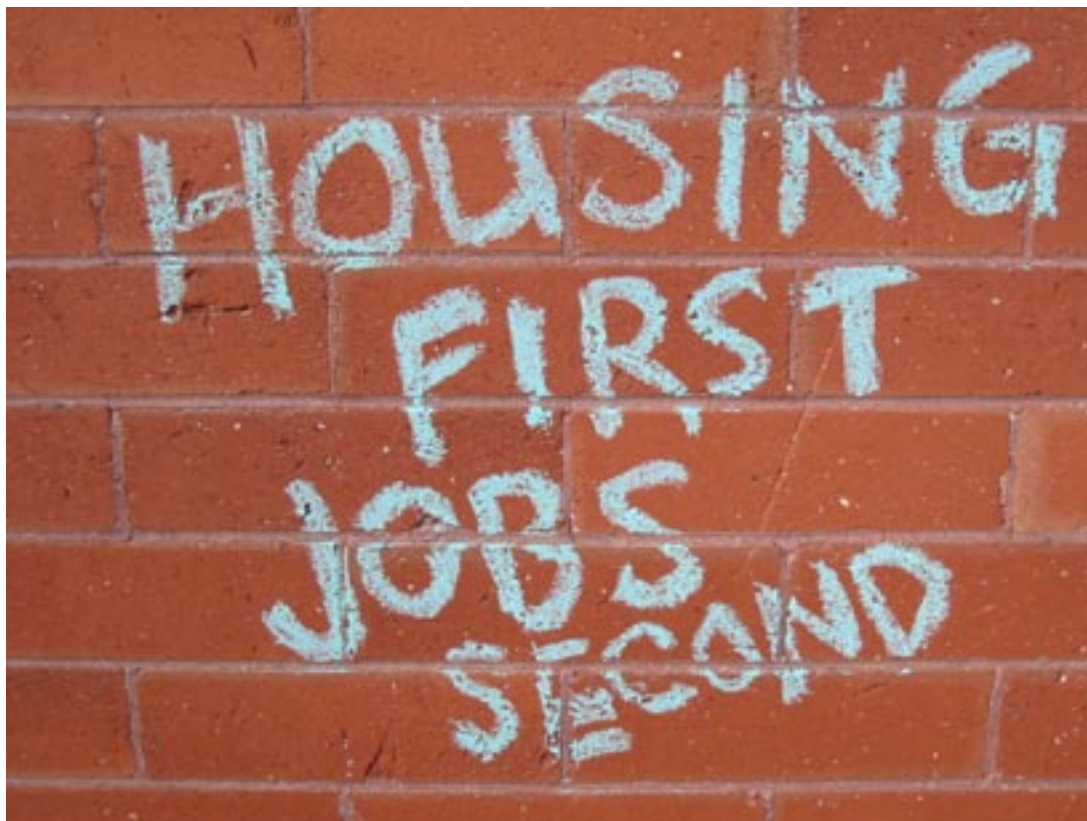 HOUSING
FIRST
JOBS
SECOND